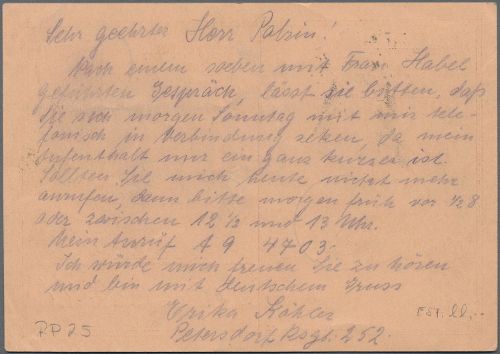 Sehr geehrter Herr Palzin!
Nach einem soeben mit Frau Habel
geführten Gespräch, lässt sie bitten, daß
Sie sich morgen Sonntag mit mir tele-
fonisch in Verbindung setzen, da mein
Aufenthalt nur ein ganz kurzer ist.
Sollten Sie mich heute nicht mehr
anrufen, dann bitte morgen früh vor ½8
oder zwischen 12 ½ und 13 Uhr.
Mein Anruf A 9 4703.
Ich würde mich freuen Sie zu hören
und bin mit Deutschem Gruss
Erika Köhler
Petersdorf Rsgb. 252.
PP25